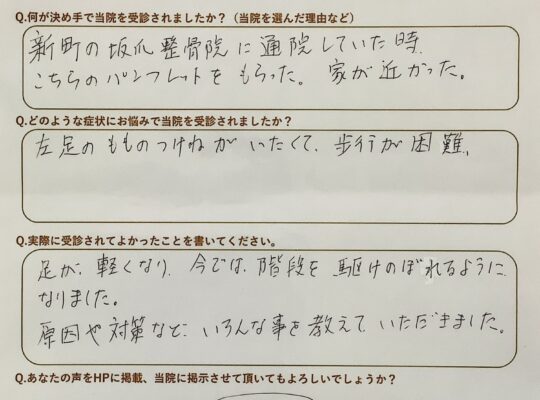 Q.何が決め手で当院を受診されましたか？（当院を選んだ理由など）
新町の坂爪整骨院に通院していた時、
こちらのパンフレットをもらった。家が近かった。
Q.どのような症状にお悩みで当院を受診されましたか？
左足のもものつけねがいたくて、歩行が困難。
Q.実際に受診されてよかったことを書いてください。
足が、軽くなり、今では、階段を駆けのぼれるように
なりました。
原因や対策など、いろんな事を教えていただきました。
Q.あなたの声をHPに掲載、当院に掲示させて頂いてもよろしいでしょうか？